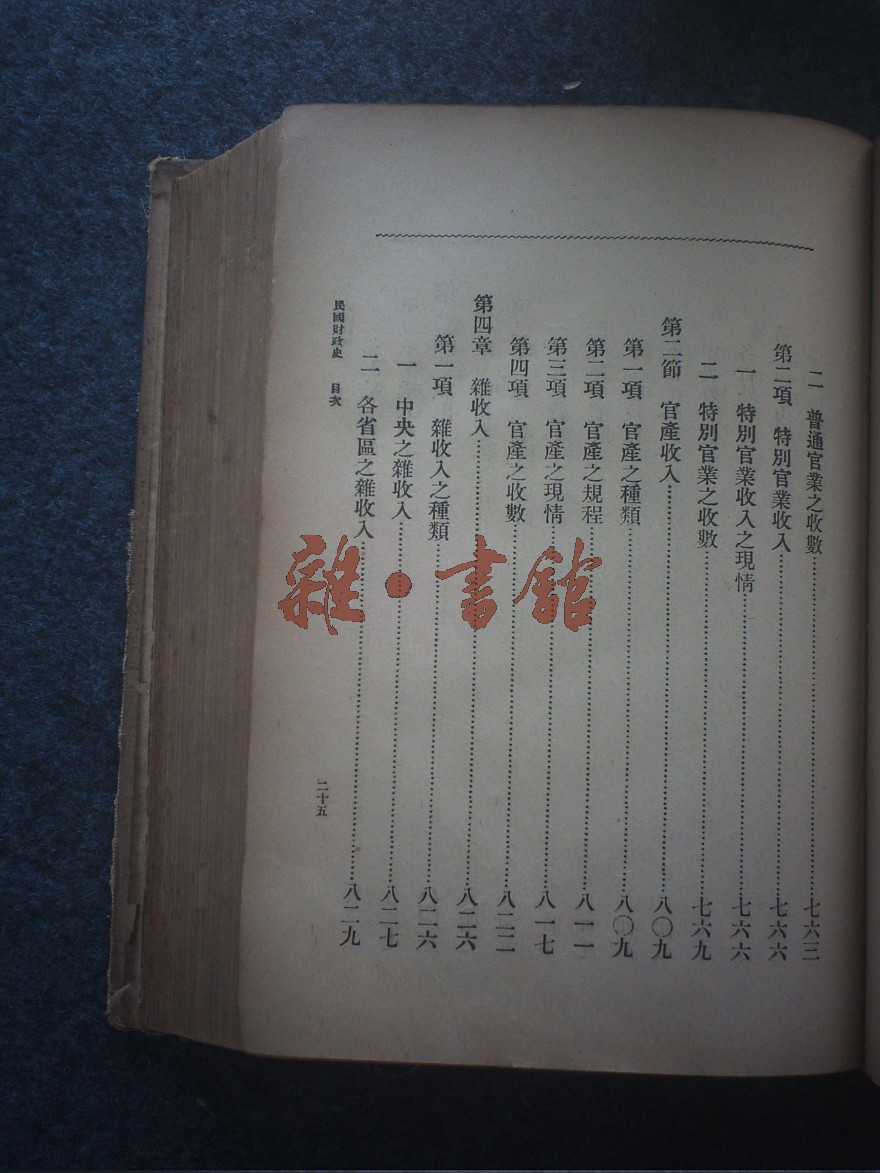 二　普通官業之收數…………七六三
第二項　特別官業收入…………七六六
一　特別官業收入之現情…………七六六
二　特別官業之收數…………七六九
第二節　官產收入…………八〇九
第一項　官產之種類…………八〇九
第二項　官產之規程…………八一一
第三項　官產之現情…………八一七
第四項　官產之收數…………八二二
第四章　雜收入…………八二六
第一項　雜收入之種類…………八二六
一　中央之雜收入…………八二七
二　各省區之雜收入…………八二九
民國財政史　目次
二十五
雜·書館